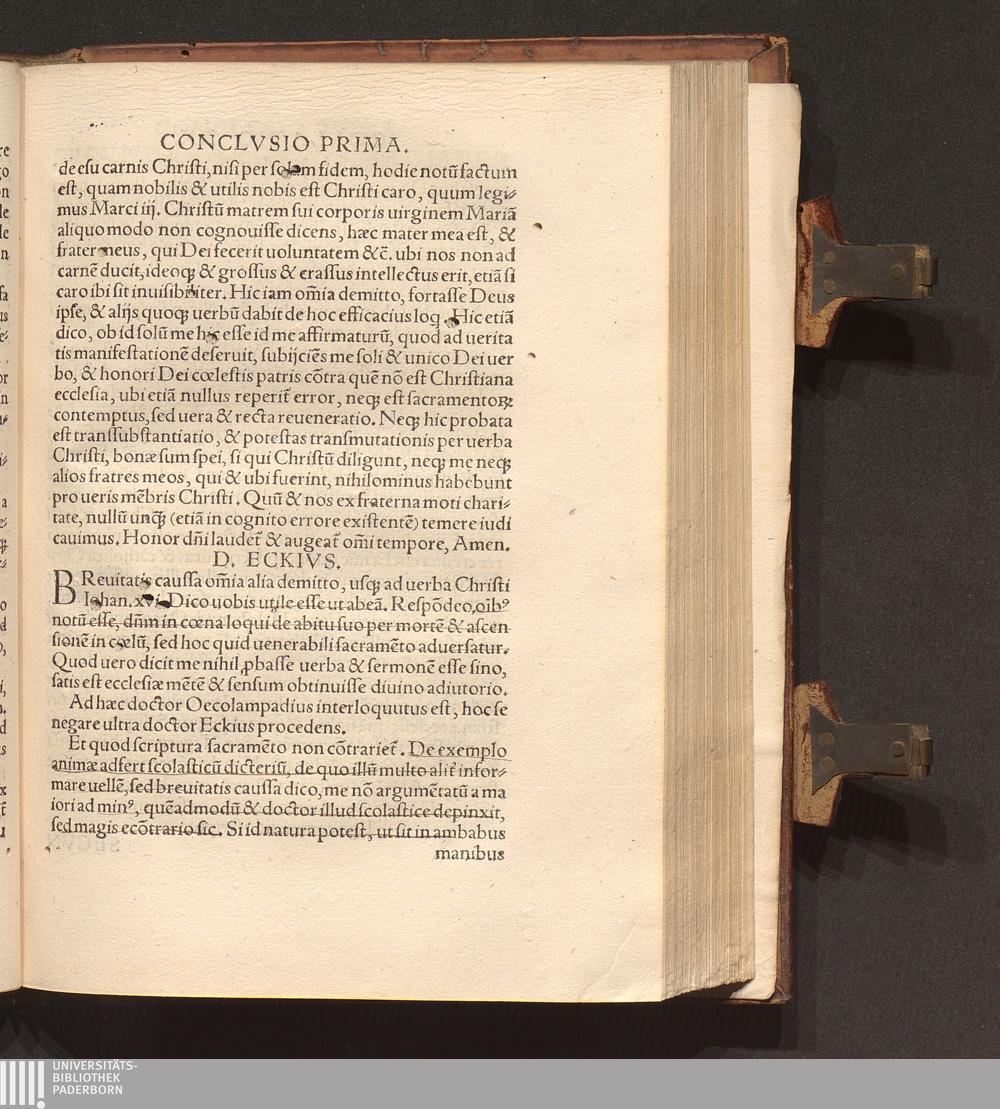 CONCLVSIO PRIMA.
de esu carnis Christi, nisi per solam fidem, hodie notũ factum
est, quam nobilis & utilis nobis est Christi caro, quum legi⸗
mus Marci iij. Christũ matrem sui corporis uirginem Mariã
aliquo modo non cognouisse dicens, hæc mater mea est, &
frater meus, qui Dei fecerit uoluntatem &c̃. ubi nos non ad
carnẽ ducit, ideoq; & grossus & crassus intellectus erit, etiã si
caro ibi sit inuisibiliter. Hic iam om̃ia demitto, fortasse Deus
ipse, & alijs quoq; uerbũ dabit de hoc efficacius loq̃. Hic etiã
dico, ob id solũ me hic esse id me affirmaturũ, quod ad uerita
tis manifestationẽ deseruit, subijciẽs me soli & unico Dei uer
bo, & honori Dei cœlestis patris cõtra quẽ nõ est Christiana
ecclesia, ubi etiã nullus reperit̃ error, neq; est sacramentoꝝ
contemptus, sed uera & recta reueneratio. Neq; hic probata
est transsubstantiatio, & potestas transmutationis per uerba
Christi, bonæ sum spei, si qui Christũ diligunt, neq; me neq;
alios fratres meos, qui & ubi fuerint, nihilominus habebunt
pro ueris mẽbris Christi. Quũ & nos ex fraterna moti chari⸗
tate, nullũ unq̃ (etiã in cognito errore existentẽ) temere iudi
cauimus. Honor dñi laudet̃ & augeat̃ om̃i tempore, Amen.
D. ECKIVS.
BReuitatis caussa om̃ia alia demitto, usq; ad uerba Christi
Iohan. xvi. Dico uobis utile esse ut abeã. Respõdeo, oĩbꝰ
notũ esse, dñm in cœna loqui de abitu suo per mortẽ & ascen
sionẽ in cœlũ, sed hoc quid uenerabili sacramẽto aduersatur.
Quod uero dicit me nihil ꝓbasse uerba & sermonẽ esse sino,
satis est ecclesiæ mẽtẽ & sensum obtinuisse diuino adiutorio.
Ad hæc doctor Oecolampadius interloquutus est, hoc se
negare ultra doctor Eckius procedens.
Et quod scriptura sacramẽto non cõtrariet̃. De exemplo
animæ adfert scolasticũ dicteriũ, de quo illũ multo alit̃ infor⸗
mare uellẽ, sed breuitatis caussa dico, me nõ argumẽtatũ a ma
iori ad minꝰ, quẽadmodũ & doctor illud scolastice depinxit,
sed magis ecõtrario sic. Si id natura potest, ut sit in ambabus
manibus
UNIVERSITÄTS-
BIBLIOTHEK
PADERBORN